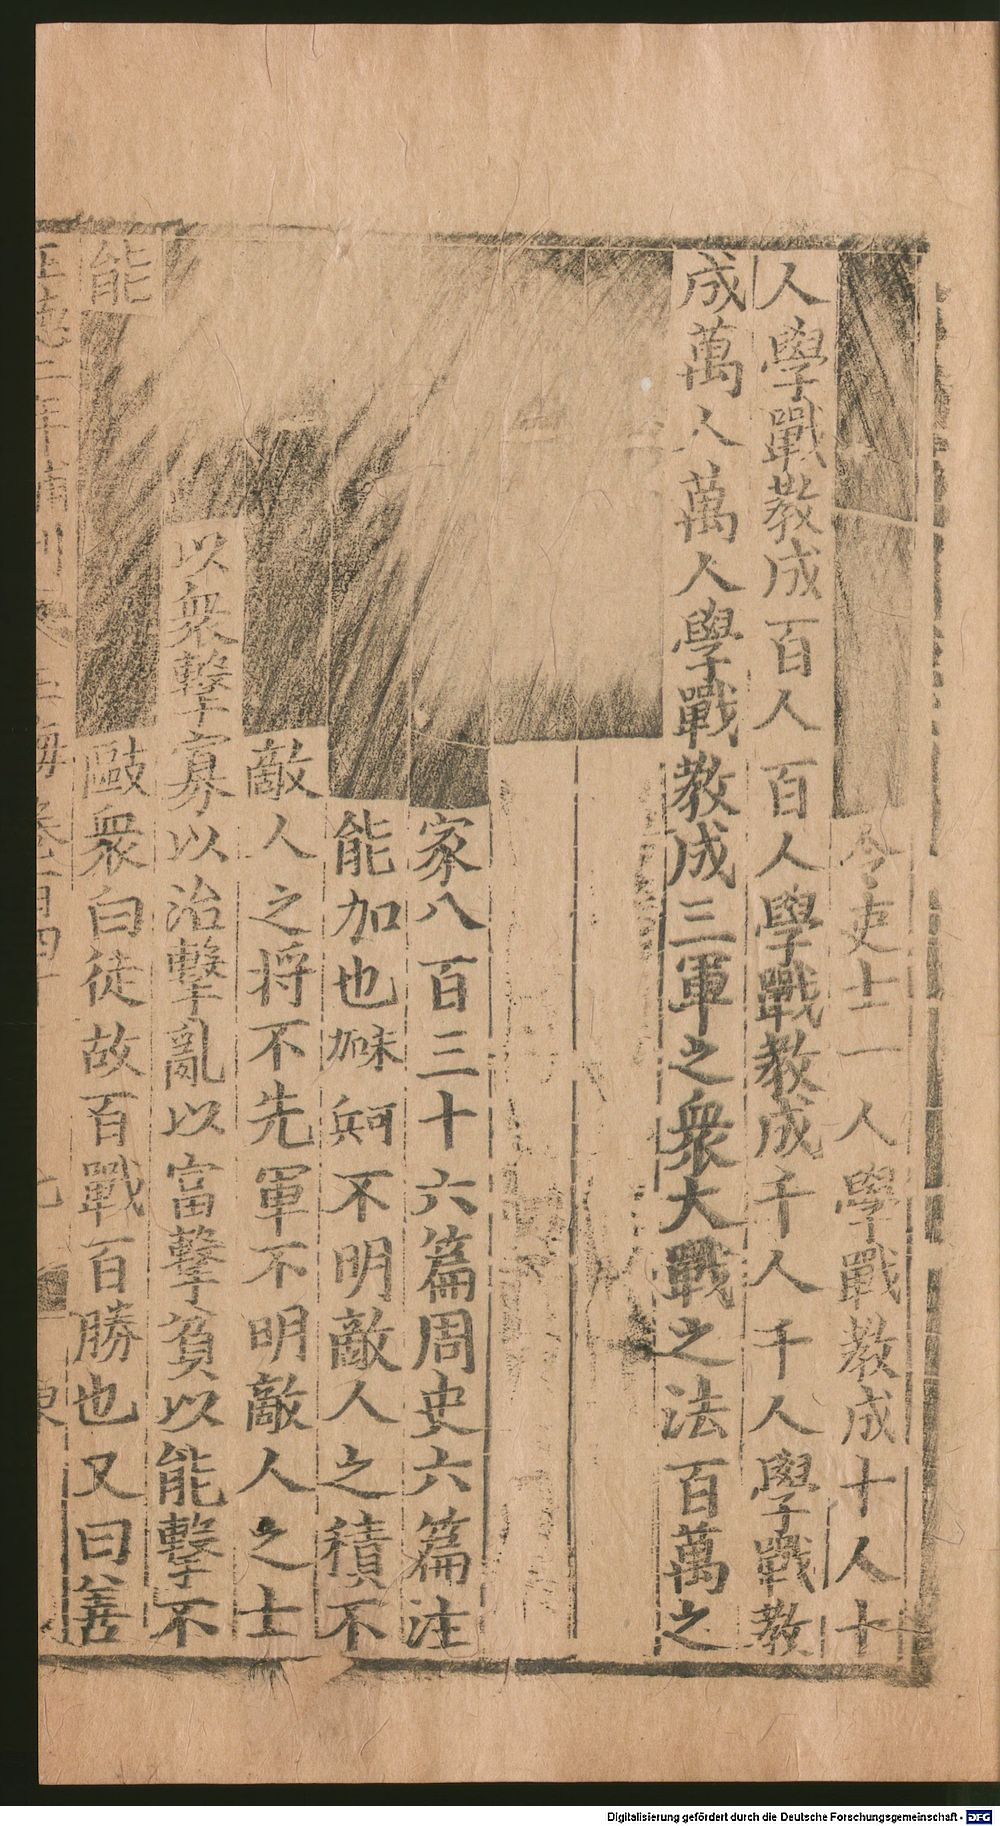 令吏士一人學戰教成十人十
人學戰教成百人百人學戰教成千人千人學戰教
成萬人萬人學戰教成三軍之衆大戰之法百萬之
家八百三十六篇周史六篇注
能加也 不明敵人之積不
敵人之将不先軍不明敵人之士
以衆擊寡以治擊亂以富擊貧以能擊不
能 敺衆白徒故百戰百勝也又曰善
正德二年 刊 玉海卷一百四十
Digitalisierung gefördert durch die Deutsche Forschungsgemeinschaft - DFG